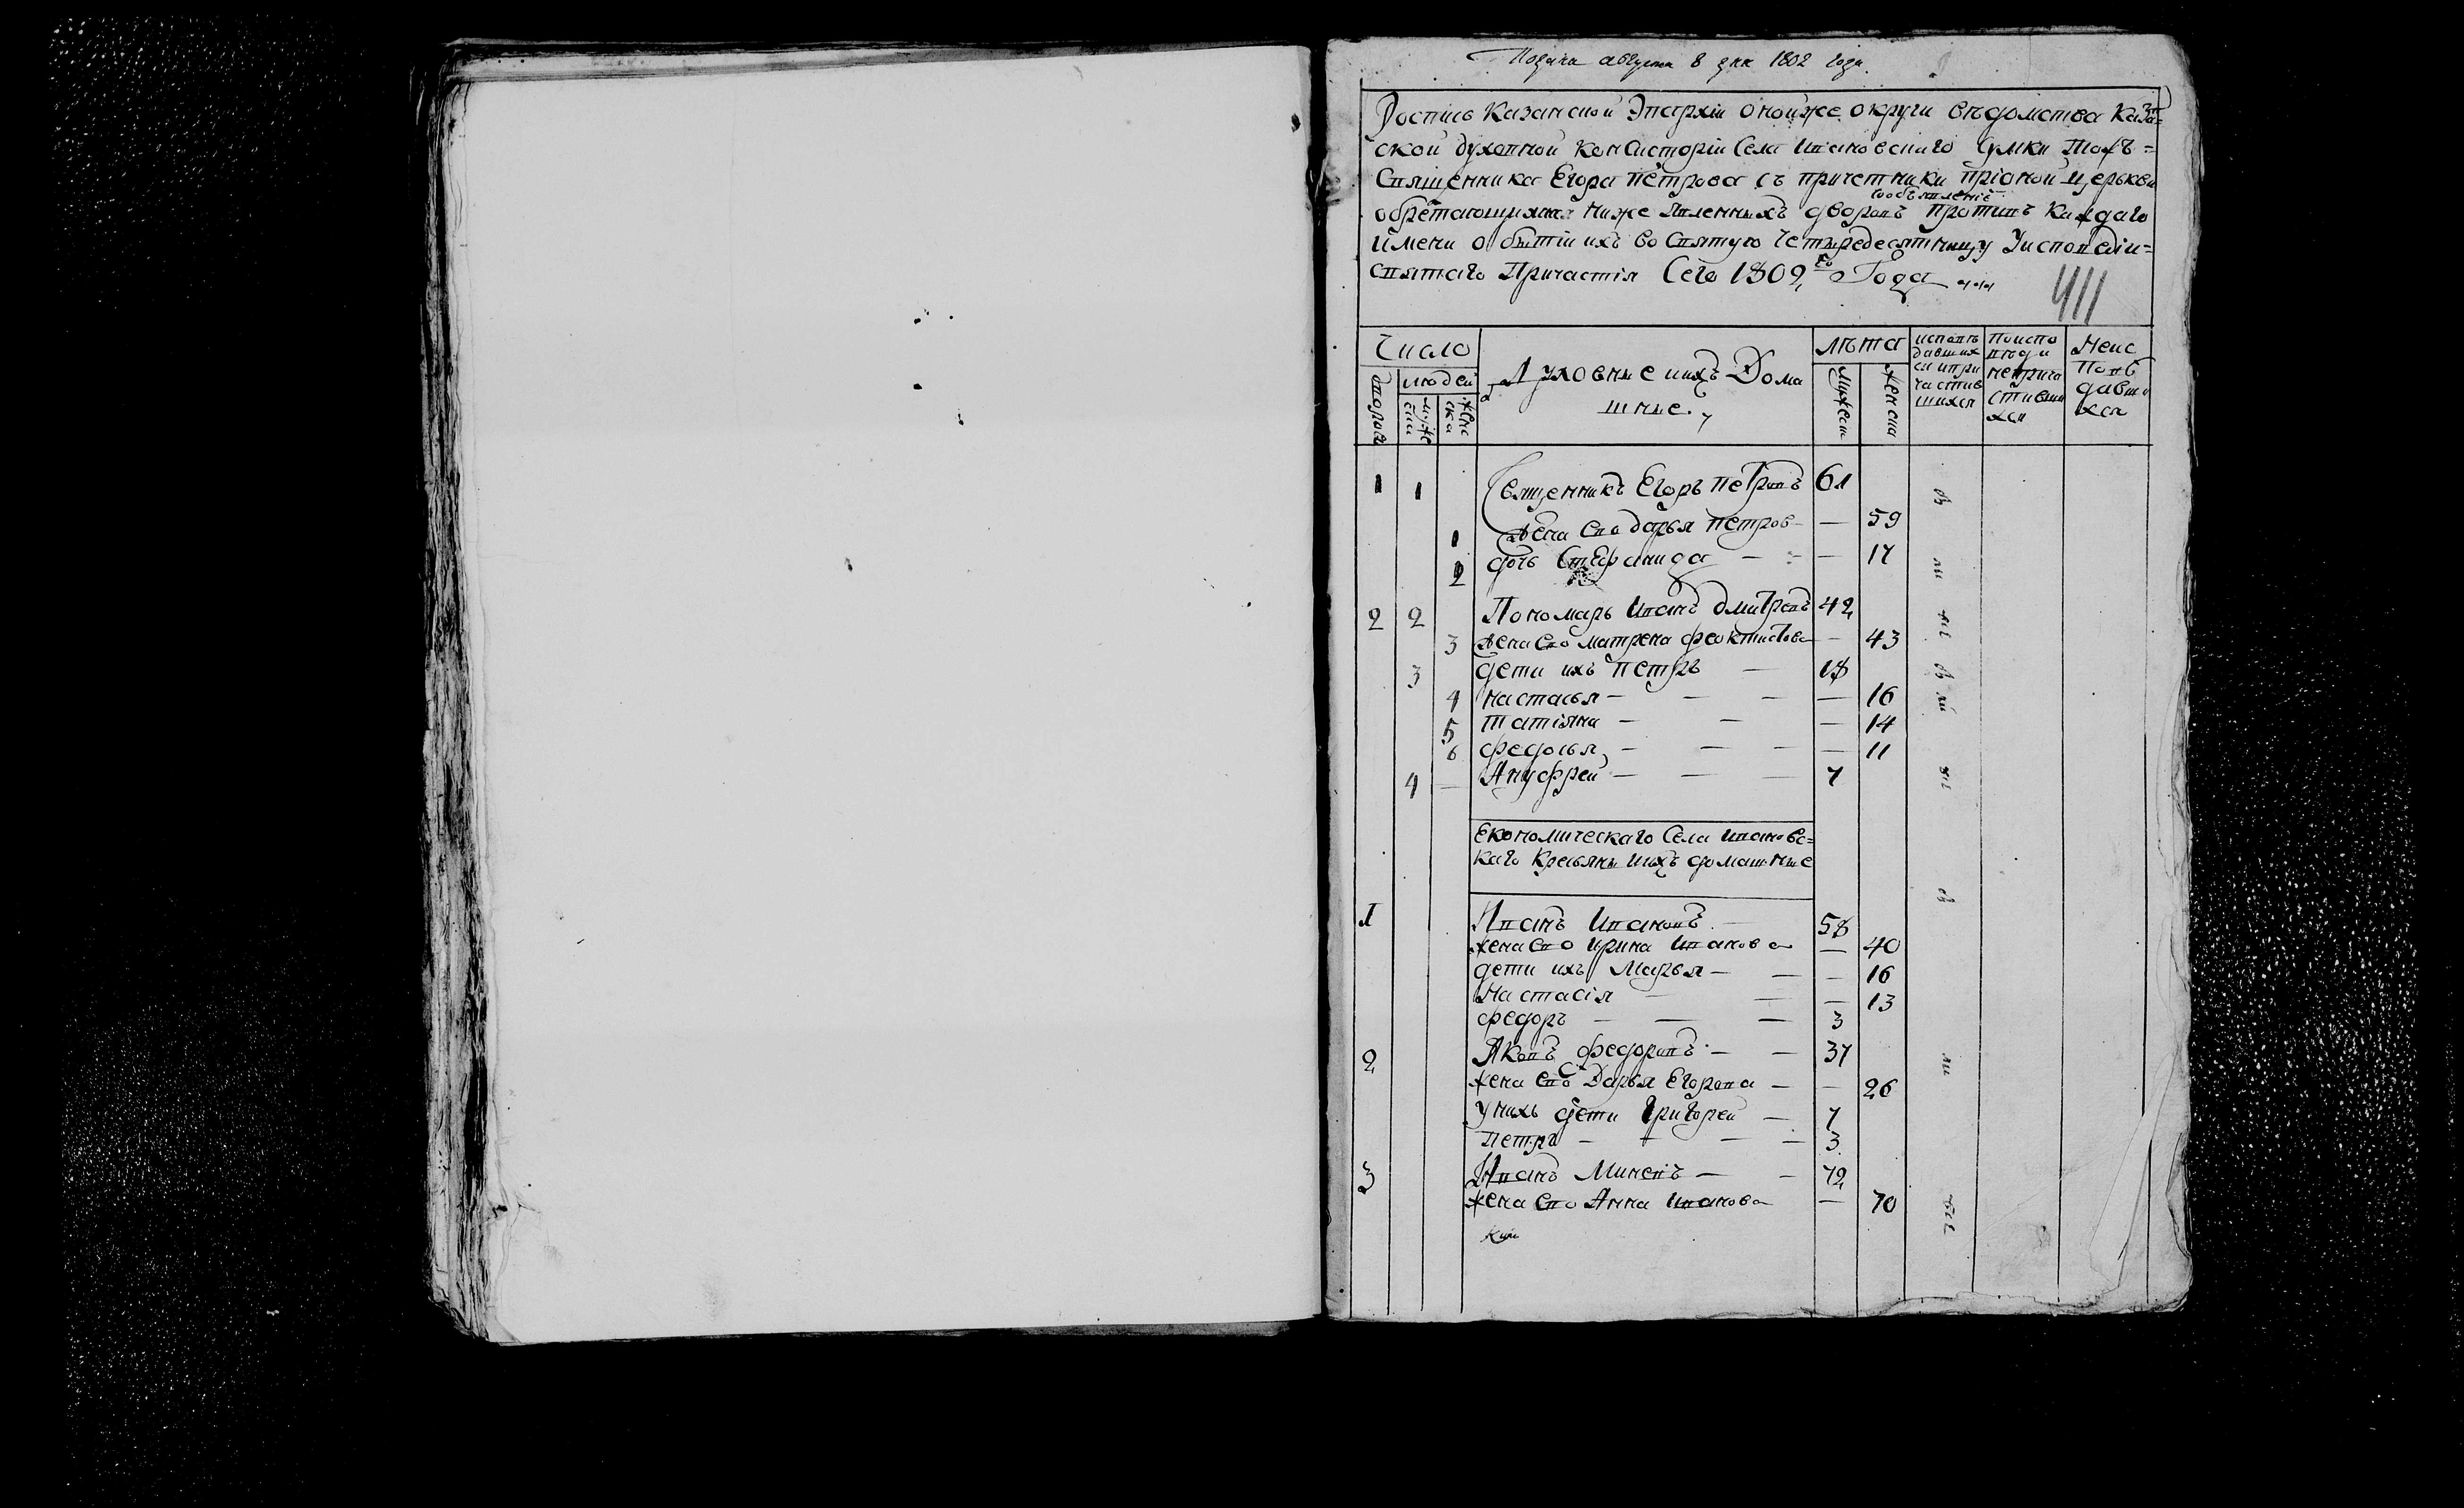 Подана августа 8 дня 1802 года
Роспись Казанской Эпархіи оной же округи вѣдомства Казан=
ской духовной Консисторіи Села Ивановскаго тожъ=
Священника Егора Петрова съ причетники при оной церькви
со объявленіемъ
обретающихся ниже явленныхъ дворовъ противъ каждаго
имени о бытіи ихъ во святую четыредесятницу у исповеди и=
святаго Причастія Сего 1802 го Года
411
Число
людей
дворовъ
муже
ска
женс
ка
Духовные и ихъ Дома
шные
лѣта
Мужеск
женска
исповѣ
давших
ся и при
частив
шихся
По испо
вѣди
неприча
стивши
хся
Неис
повѣ
давши
хся
1 1 Священникъ Егоръ Петровъ 61
1 Жена ево дарья Петров — 59
2 дочь Стефанида — — — 17
2 2 Пономарь Иванъ дмитревъ 42
3 Жена ево матрена феоктистова — 43
3 дети ихъ петръ — 18
4 настасья — — — — 16
5 татіяна — — — 14
6 федосья — — — — 11
4 — Ануфрей — — — 7
Економическаго Села Ивановс=
каго Кресьяны и ихъ домашные
1 Иванъ Ивановъ — 58
жена ево ирина Иванова — 40
дети ихъ Марья — — — 16
Настасія — — — 13
федоръ — — — 3
2 Яковъ федоровъ — — 37
жена ево Дарья Егорова — — 26
У нихъ дети Григорей — 7
петръ — — — — 3
3 Иванъ Миневъ — — 72
жена ево Анна Иванова — 70